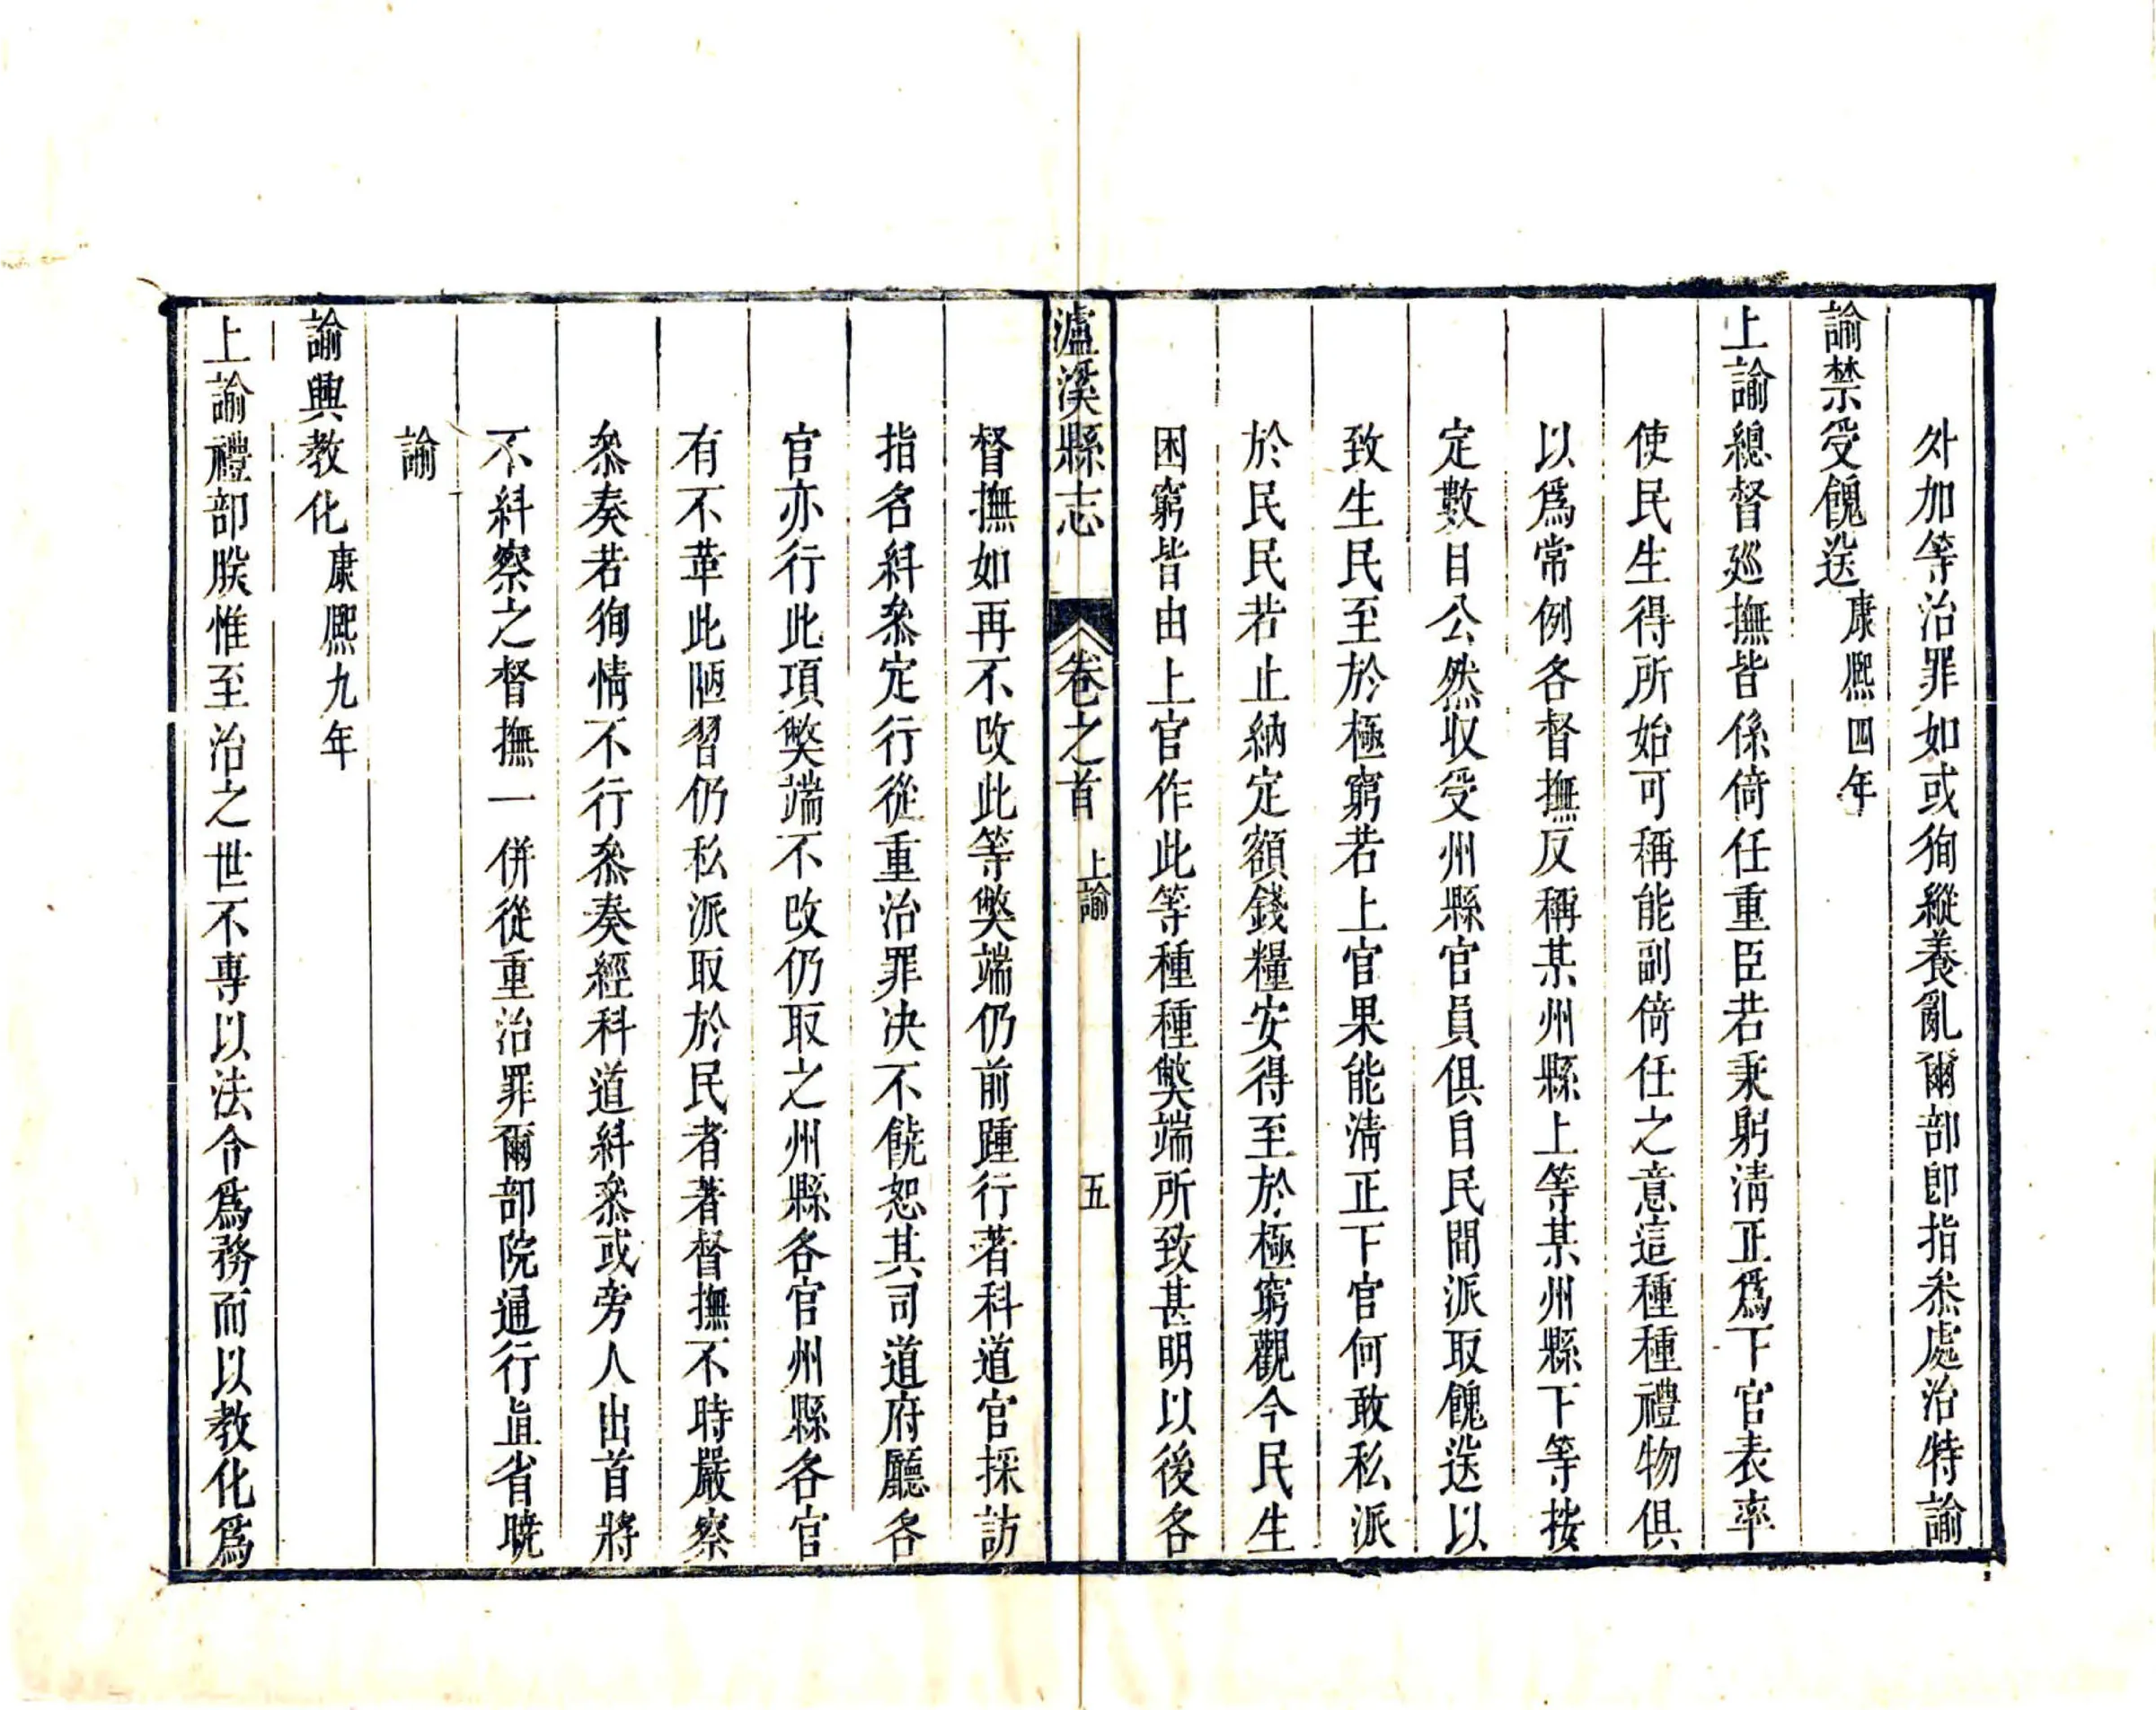 外加等治罪如或狥縱養亂爾部卽指叅處治特諭
諭禁受餽送康熙四年
上諭總督廵撫皆係倚任重臣若秉躬淸正爲下官表率
使民生得所始可稱能副倚任之意這種種禮物俱
以爲常例各督撫反稱某州縣上等某州縣下等按
定數目公然收受州縣官員俱自民間派取餽送以
致生民至於極窮若上官果能淸正下官何敢私派
於民民若止納定額錢糧安得至於極窮觀今民生
困窮皆由上官作此等種種獘端所致甚明以後各
瀘溪縣志 卷之首 上諭 五
督撫如再不改此等獘端仍前踵行著科道官採訪
指名糾叅定行從重治罪決不饒恕其司道府廳各
官亦行此項獘端不改仍取之州縣各官州縣各官
有不革此陋習仍私派取於民者著督撫不時嚴察
叅奏若狥情不行叅奏經科道糾叅或旁人出首將
不糾察之督撫一併從重治罪爾部院通行直省曉
諭
諭興教化康熙九年
上諭禮部朕惟至治之世不專以法令爲務而以教化爲